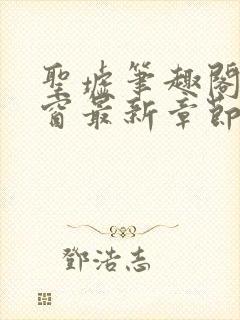 聖墟筆趣閣
窗最新章節
鄧浩志